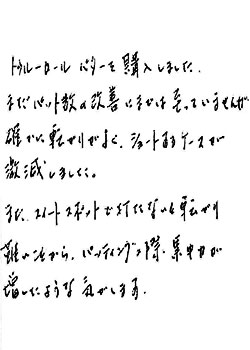 トゥルーロールパターを購入しました。
まだパット数の改善にまでは至っていませんが
確かに転がりがよく、ショートするケースが
激減しました。
また、スイートスポットで打たないと転がり
難いことから、パッティングの際、集中力が
増したような気がします。